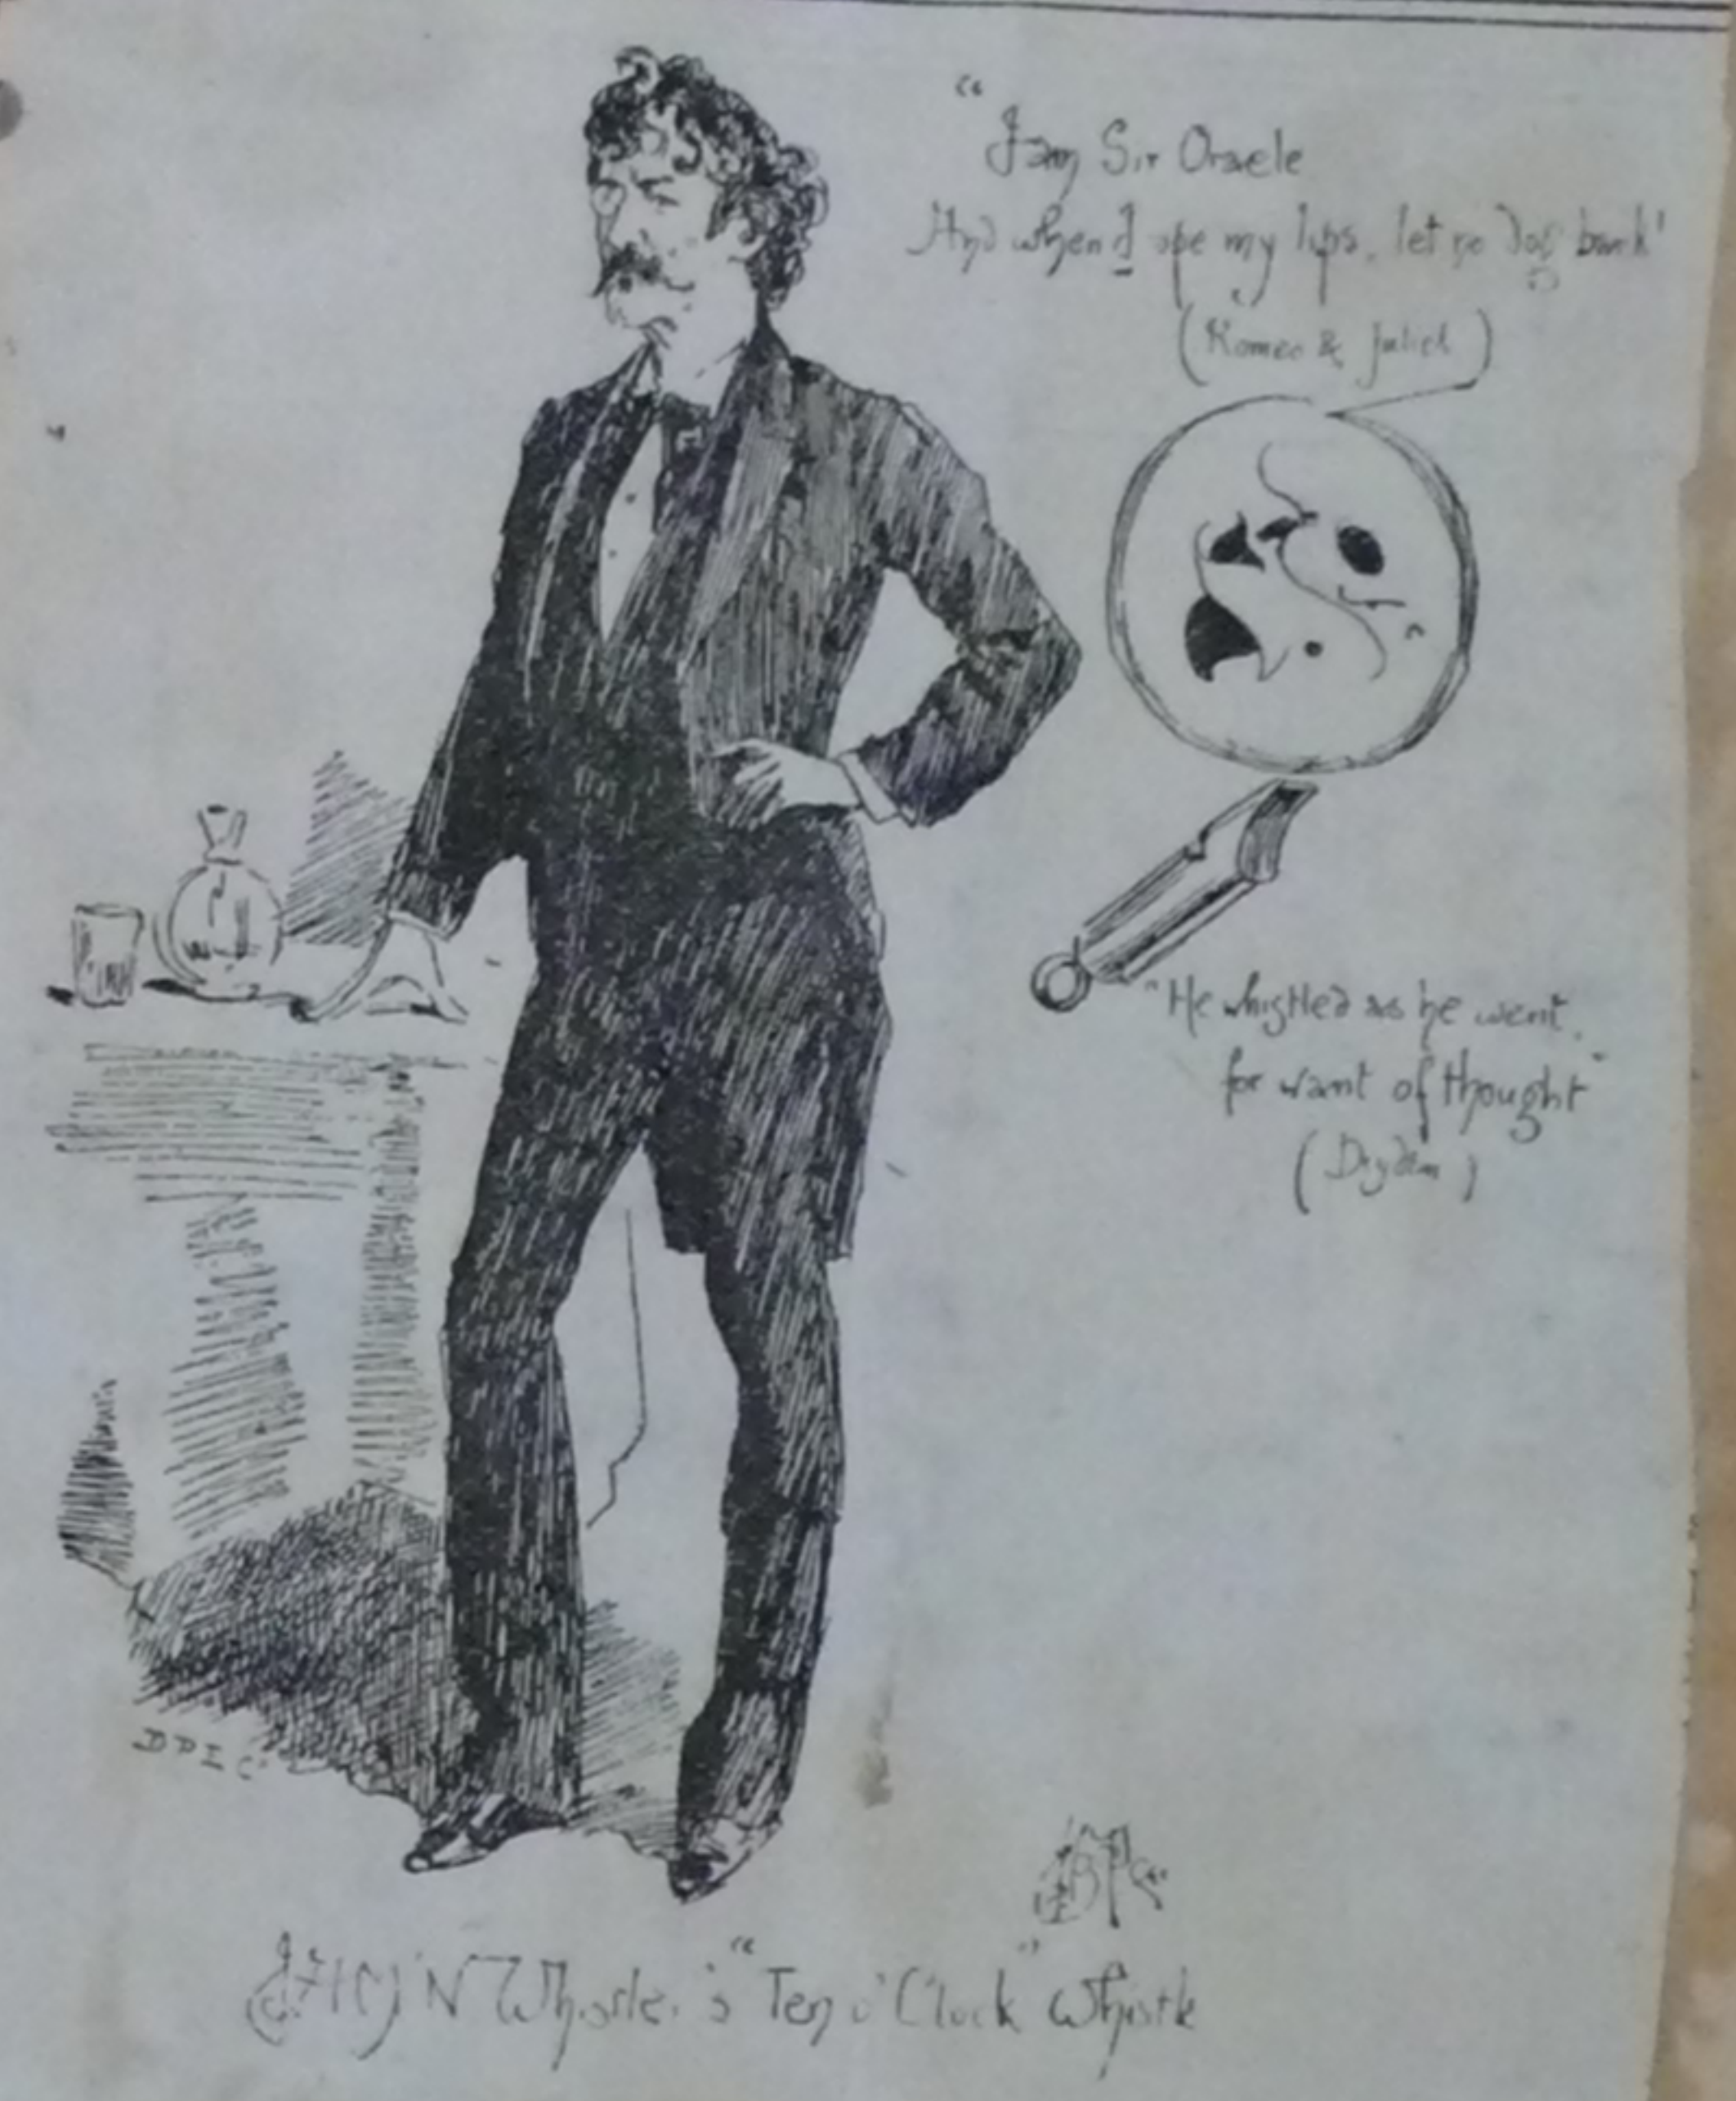 "I am Sir Oracle
And when I ope my lips, let no dog bark'
(Romeo & Juliet)
"He whistled as he went,
for want of thought"
(Dryden)
N Whistler's "Ten o'Clock" Whistle